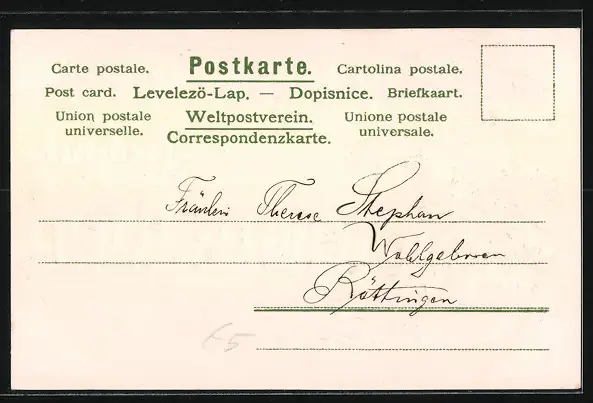 Carte postale. Postkarte. Cartolina postale.
Post card. Levelezö-Lap. — Dopisnice. Briefkaart.
Union postale universelle. Weltpostverein. Unione postale universale.
Correspondenzkarte.
Fräulein Therese Stephan
Wohlgeboren
Röttingen